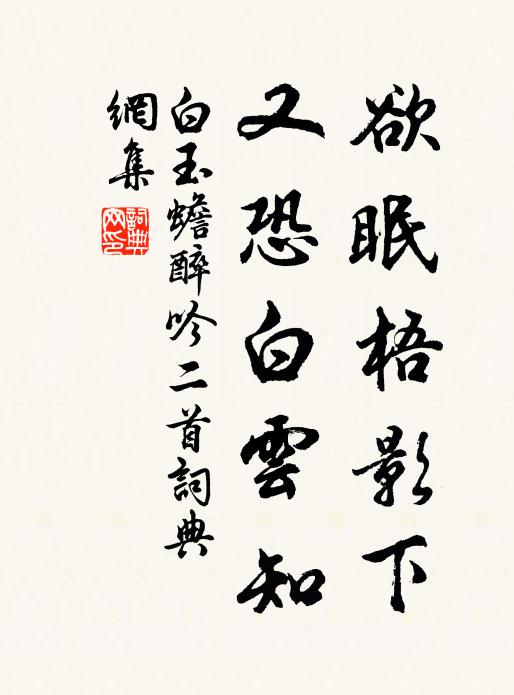 欲眠梧影下
又恐白雲知
白玉蟾醉吟二首詞典
網集
詞典
网印